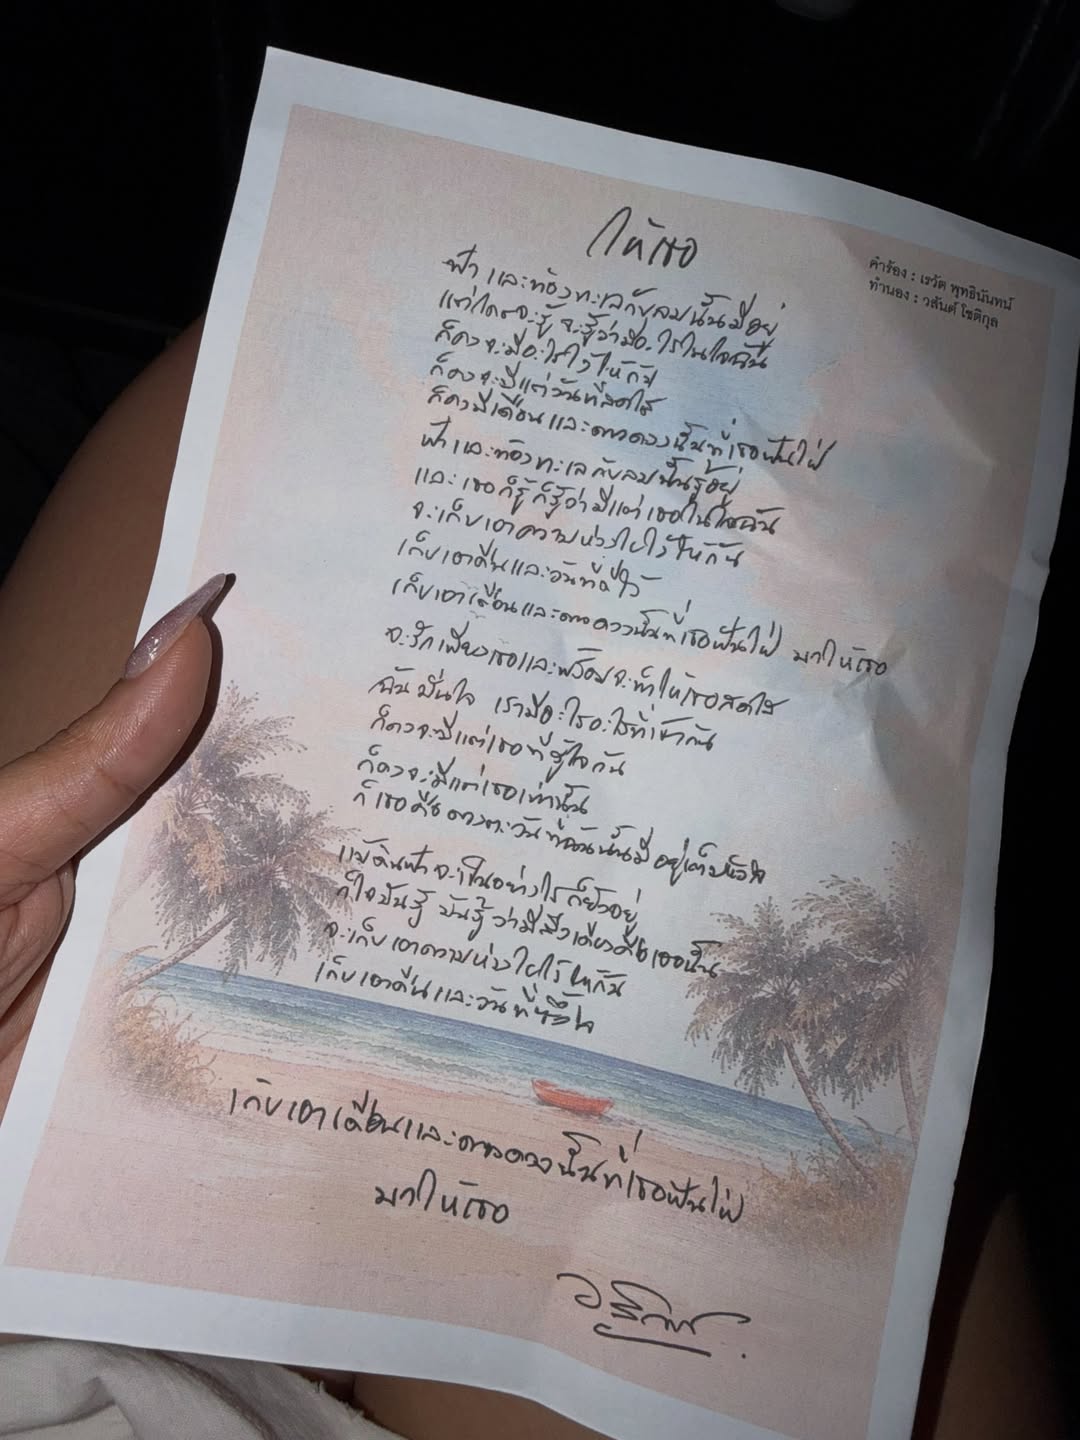 ให้เธอ
คำร้อง : เรวัต พุทธินันทน์
ทำนอง : วสันต์ โชติกุล
ฟ้าและท้องทะเลกับลมนั้นมีอยู่
แต่ใครจะรู้ จะรู้ว่ามีอะไรในใจฉัน
ก็คงจะมีอะไรไว้ให้กัน
ก็คงจะมีแต่วันที่สดใส
ก็คงมีเดือนและดาวดวงนั้นที่เธอฝันใฝ่
ฟ้าและท้องทะเลกับลมนั้นรู้อยู่
และเธอก็รู้ ก็รู้ว่ามีแต่เธอในใจฉัน
จะเก็บเอาความห่วงใยไว้ให้กัน
เก็บเอาคืนและวันที่ดีไว้
เก็บเอาเดือนและดาวดวงนั้นที่เธอฝันใฝ่ มาให้เธอ
จะรักเพียงเธอและพร้อมจะทำให้เธอสดใส
ฉันมั่นใจ เรามีอะไรอะไรที่เข้ากัน
ก็คงจะมีแต่เธอที่รู้ใจกัน
ก็คงจะมีแต่เธอเท่านั้น
ก็เธอคือดวงตะวันที่ฉันนั้นมีอยู่เต็มหัวใจ
แม้ดินฟ้าจะเป็นอย่างไรก็ยังอยู่
ก็ใจมันรู้ มันรู้ว่ามีสิ่งเดียวคือเธอนั้น
จะเก็บเอาความห่วงใยไว้ให้กัน
เก็บเอาคืนและวันที่ซึ้งใจ
เก็บเอาเดือนและดาวดวงนั้นที่เธอฝันใฝ่
มาให้เธอ